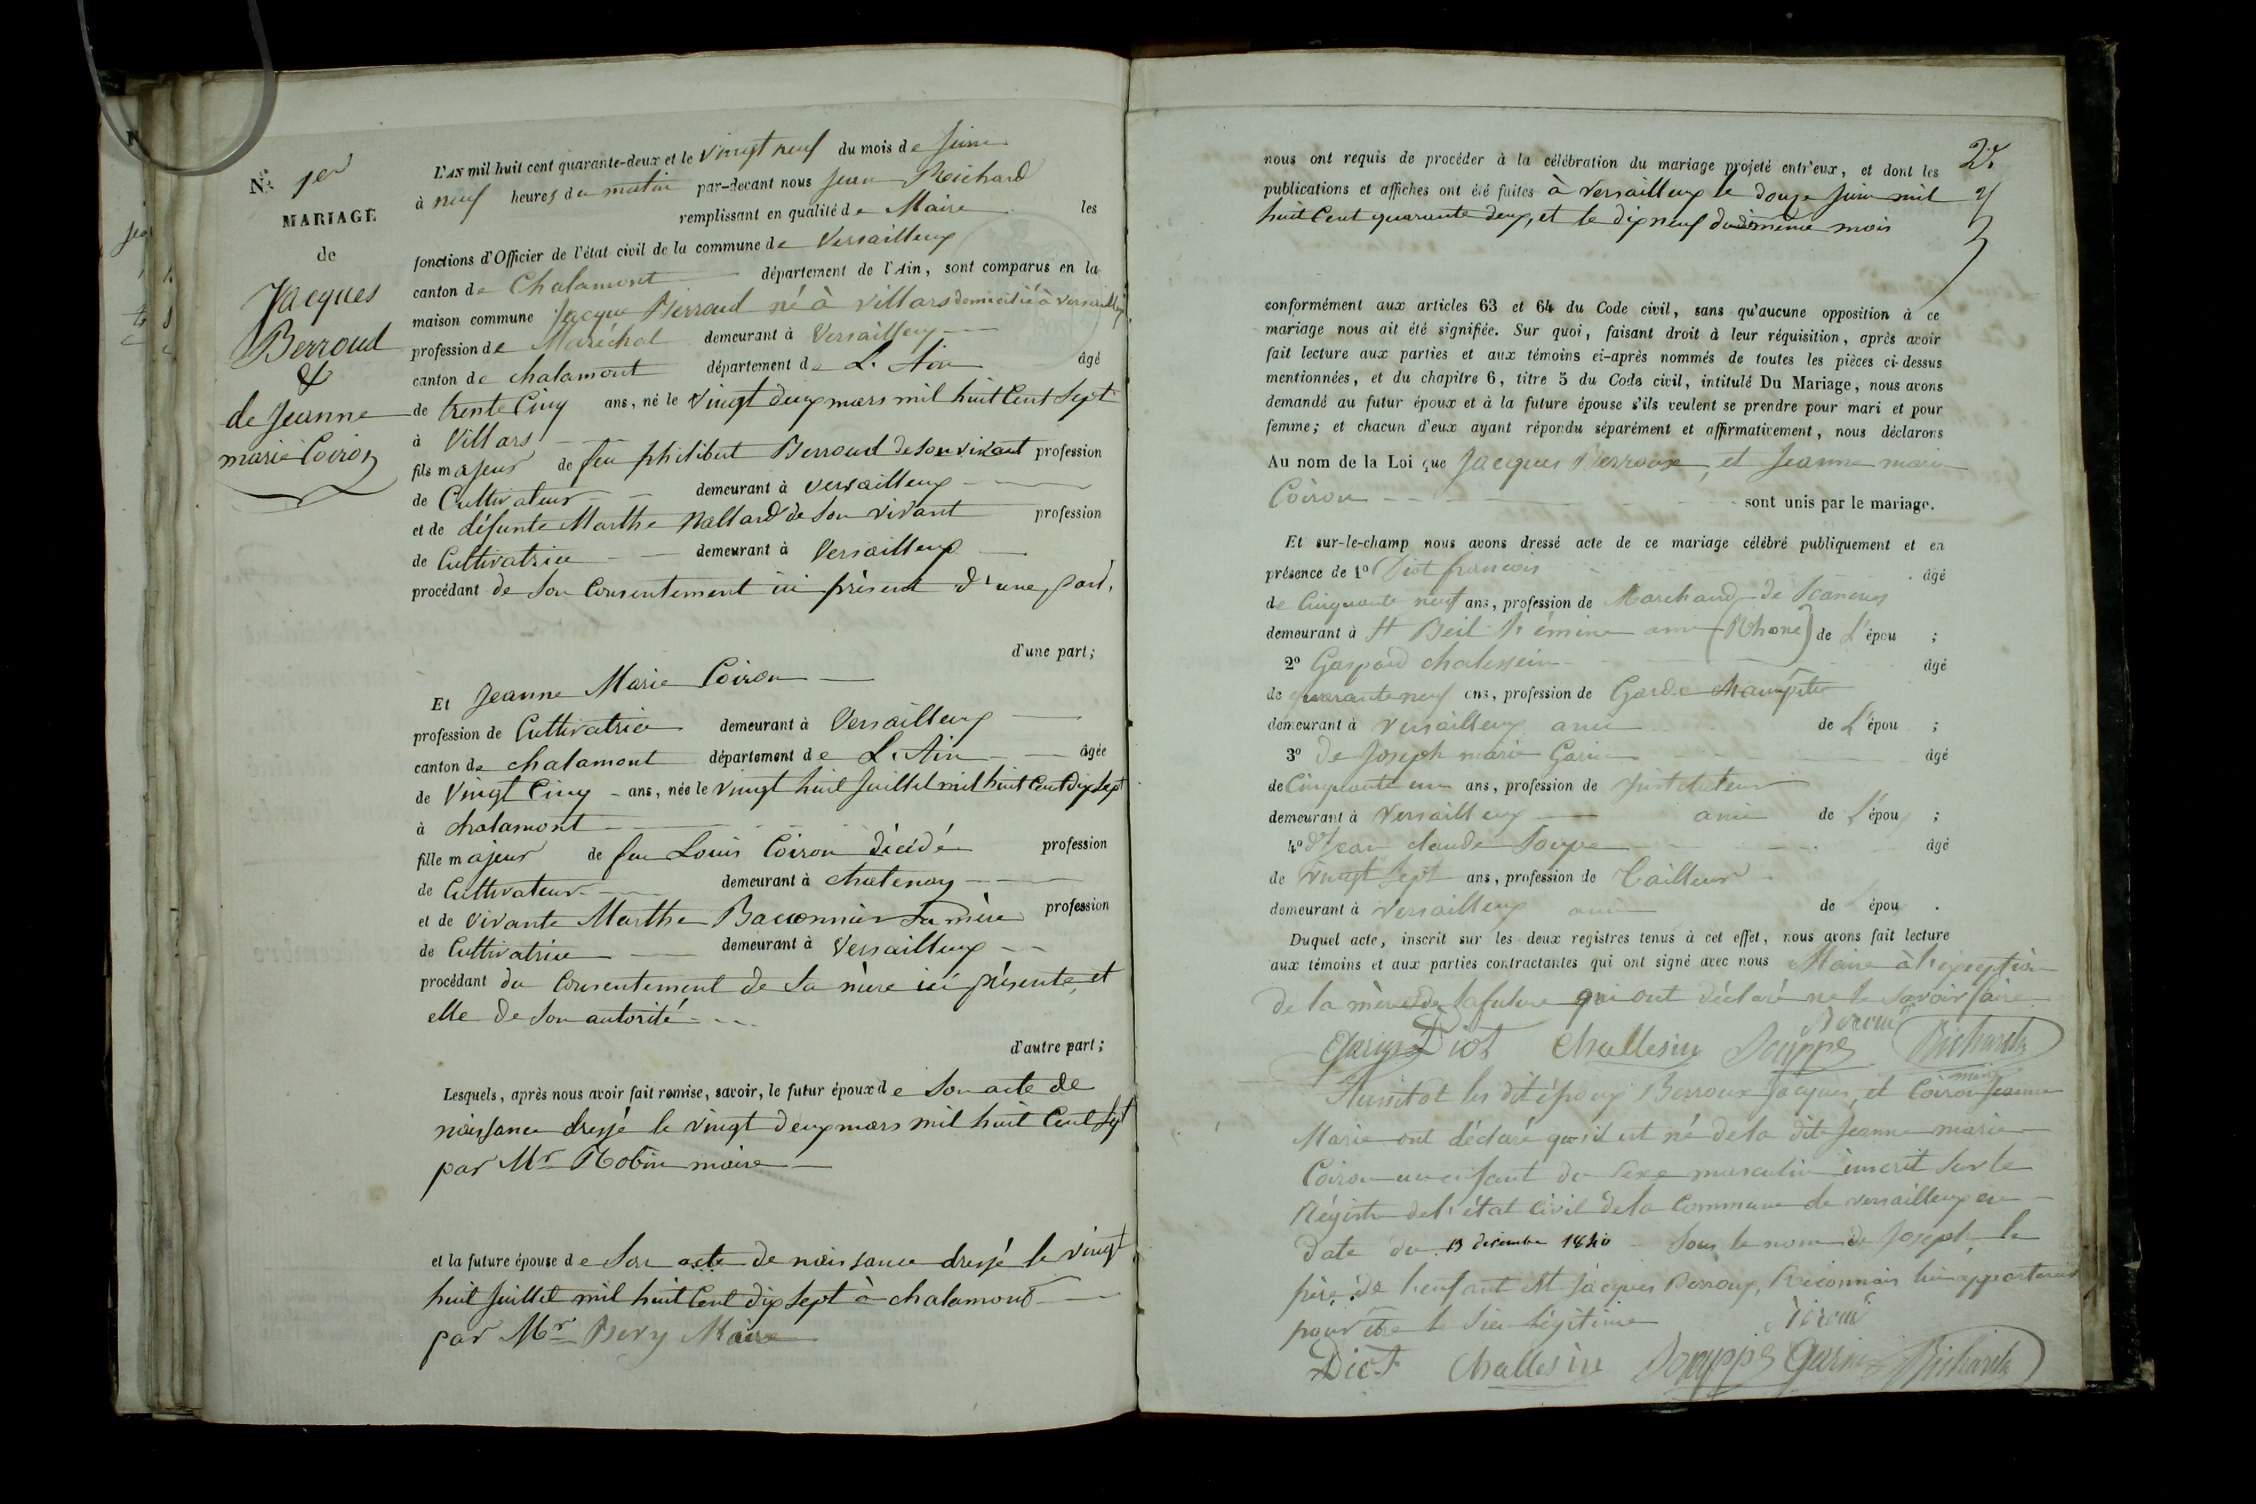 N° 1er
MARIAGE
de
Jacques
Berroud
&
de Jeanne
marie Coiron
L'AN mil huit cent quarante-deux et le vingt neuf du mois de Juin
à neuf heures du matin par-devant nous Jean Reichard
remplissant en qualité de Maire les
fonctions d'Officier de l'état civil de la commune de Versailleux
canton de Chalamont département de l'Ain, sont comparus en la
maison commune Jacque Berroud né à villars domicilié à versailleux
profession de Maréchal demeurant à Versailleux
canton de chalamont département de L'Ain âgé
de trente Cinq ans, né le vingt deux mars mil huit Cent Sept
à Villars
fils majeur de feu philibert Berroud de son vivant profession
de Cultivateur demeurant à versailleux
et de défunte Marthe Nallard de son vivant profession
de Cultivatrice demeurant à Versailleux
procédant de son Consentement ici présent d'une part,
d'une part;
Et Jeanne Marie Coiron
profession de Cultivatrice demeurant à Versailleux
canton de chalamont département de L'Ain âgée
de Vingt Cinq ans, née le vingt huit Juillet mil huit Cent Dix Sept
à chalamont
fille majeur de feu Louis Coiron décédé profession
de Cultivateur demeurant à chatenay
et de vivante Marthe Baconnier Sa mère profession
de Cultivatrice demeurant à Versailleux
procédant du Consentement de Sa mère ici présente, et
elle de son autorité
d'autre part;
Lesquels, après nous avoir fait remise, savoir, le futur époux de Son acte de
naissance dressé le vingt deux mars mil huit Cent Sept
par Mr Robin maire
et la future épouse de Son acte de naissance dressé le vingt
huit Juillet mil huit Cent dix Sept à chalamont
par Mr Bery Maire
2
nous ont requis de procéder à la célébration du mariage projeté entr'eux, et dont les
publications et affiches ont été faites à Versailleux le douze Juin mil
huit Cent quarante deux, et le dix neuf du même mois
conformément aux articles 63 et 64 du Code civil, sans qu'aucune opposition à ce
mariage nous ait été signifiée. Sur quoi, faisant droit à leur réquisition, après avoir
fait lecture aux parties et aux témoins ci-après nommés de toutes les pièces ci-dessus
mentionnées, et du chapitre 6, titre 5 du Code civil, intitulé Du Mariage, nous avons
demandé au futur époux et à la future épouse s'ils veulent se prendre pour mari et pour
femme; et chacun d'eux ayant répondu séparément et affirmativement, nous déclarons
Au nom de la Loi que Jacques Berroux, et Jeanne marie
Coiron sont unis par le mariage.
Et sur-le-champ nous avons dressé acte de ce mariage célébré publiquement et en
présence de 1° Diot francois âgé
de Cinquante neuf ans, profession de Marchand de
demeurant à St ami (Rhone) de L'épou ;
2° Gaspard chalessein âgé
de quarante neuf ans, profession de Garde champêtre
demeurant à Versailleux ami de L'épou ;
3° de Joseph marie Garin âgé
de Cinquante un ans, profession de Instituteur
demeurant à Versailleux ami de L'épou ;
4° d'Jean claude Soupe âgé
de vingt Sept ans, profession de Tailleur
demeurant à Versailleux ami de épou .
Duquel acte, inscrit sur les deux registres tenus à cet effet, nous avons fait lecture
aux témoins et aux parties contractantes qui ont signé avec nous Maire à l'exeption
de la mère de la future qui ont déclaré ne le savoir faire.
Garin Diot Challesin Souppe Richard
Aussitot les dit époux Berroux Jacques, et Coiron Jeanne
Marie ont déclaré qu'il est né de la dite Jeanne marie
Coiron un enfant du Sexe masculin inscrit Sur le
Régistre de l'état Civil de la Commune de versailleux en
date du 13 décembre 1840 Sous le nom de Joseph, le
père de l'enfant est Jacques Berroux, Reconnais lui appartenir
pour être le Sien légitime
Diot Challesin Souppe Garin Richard